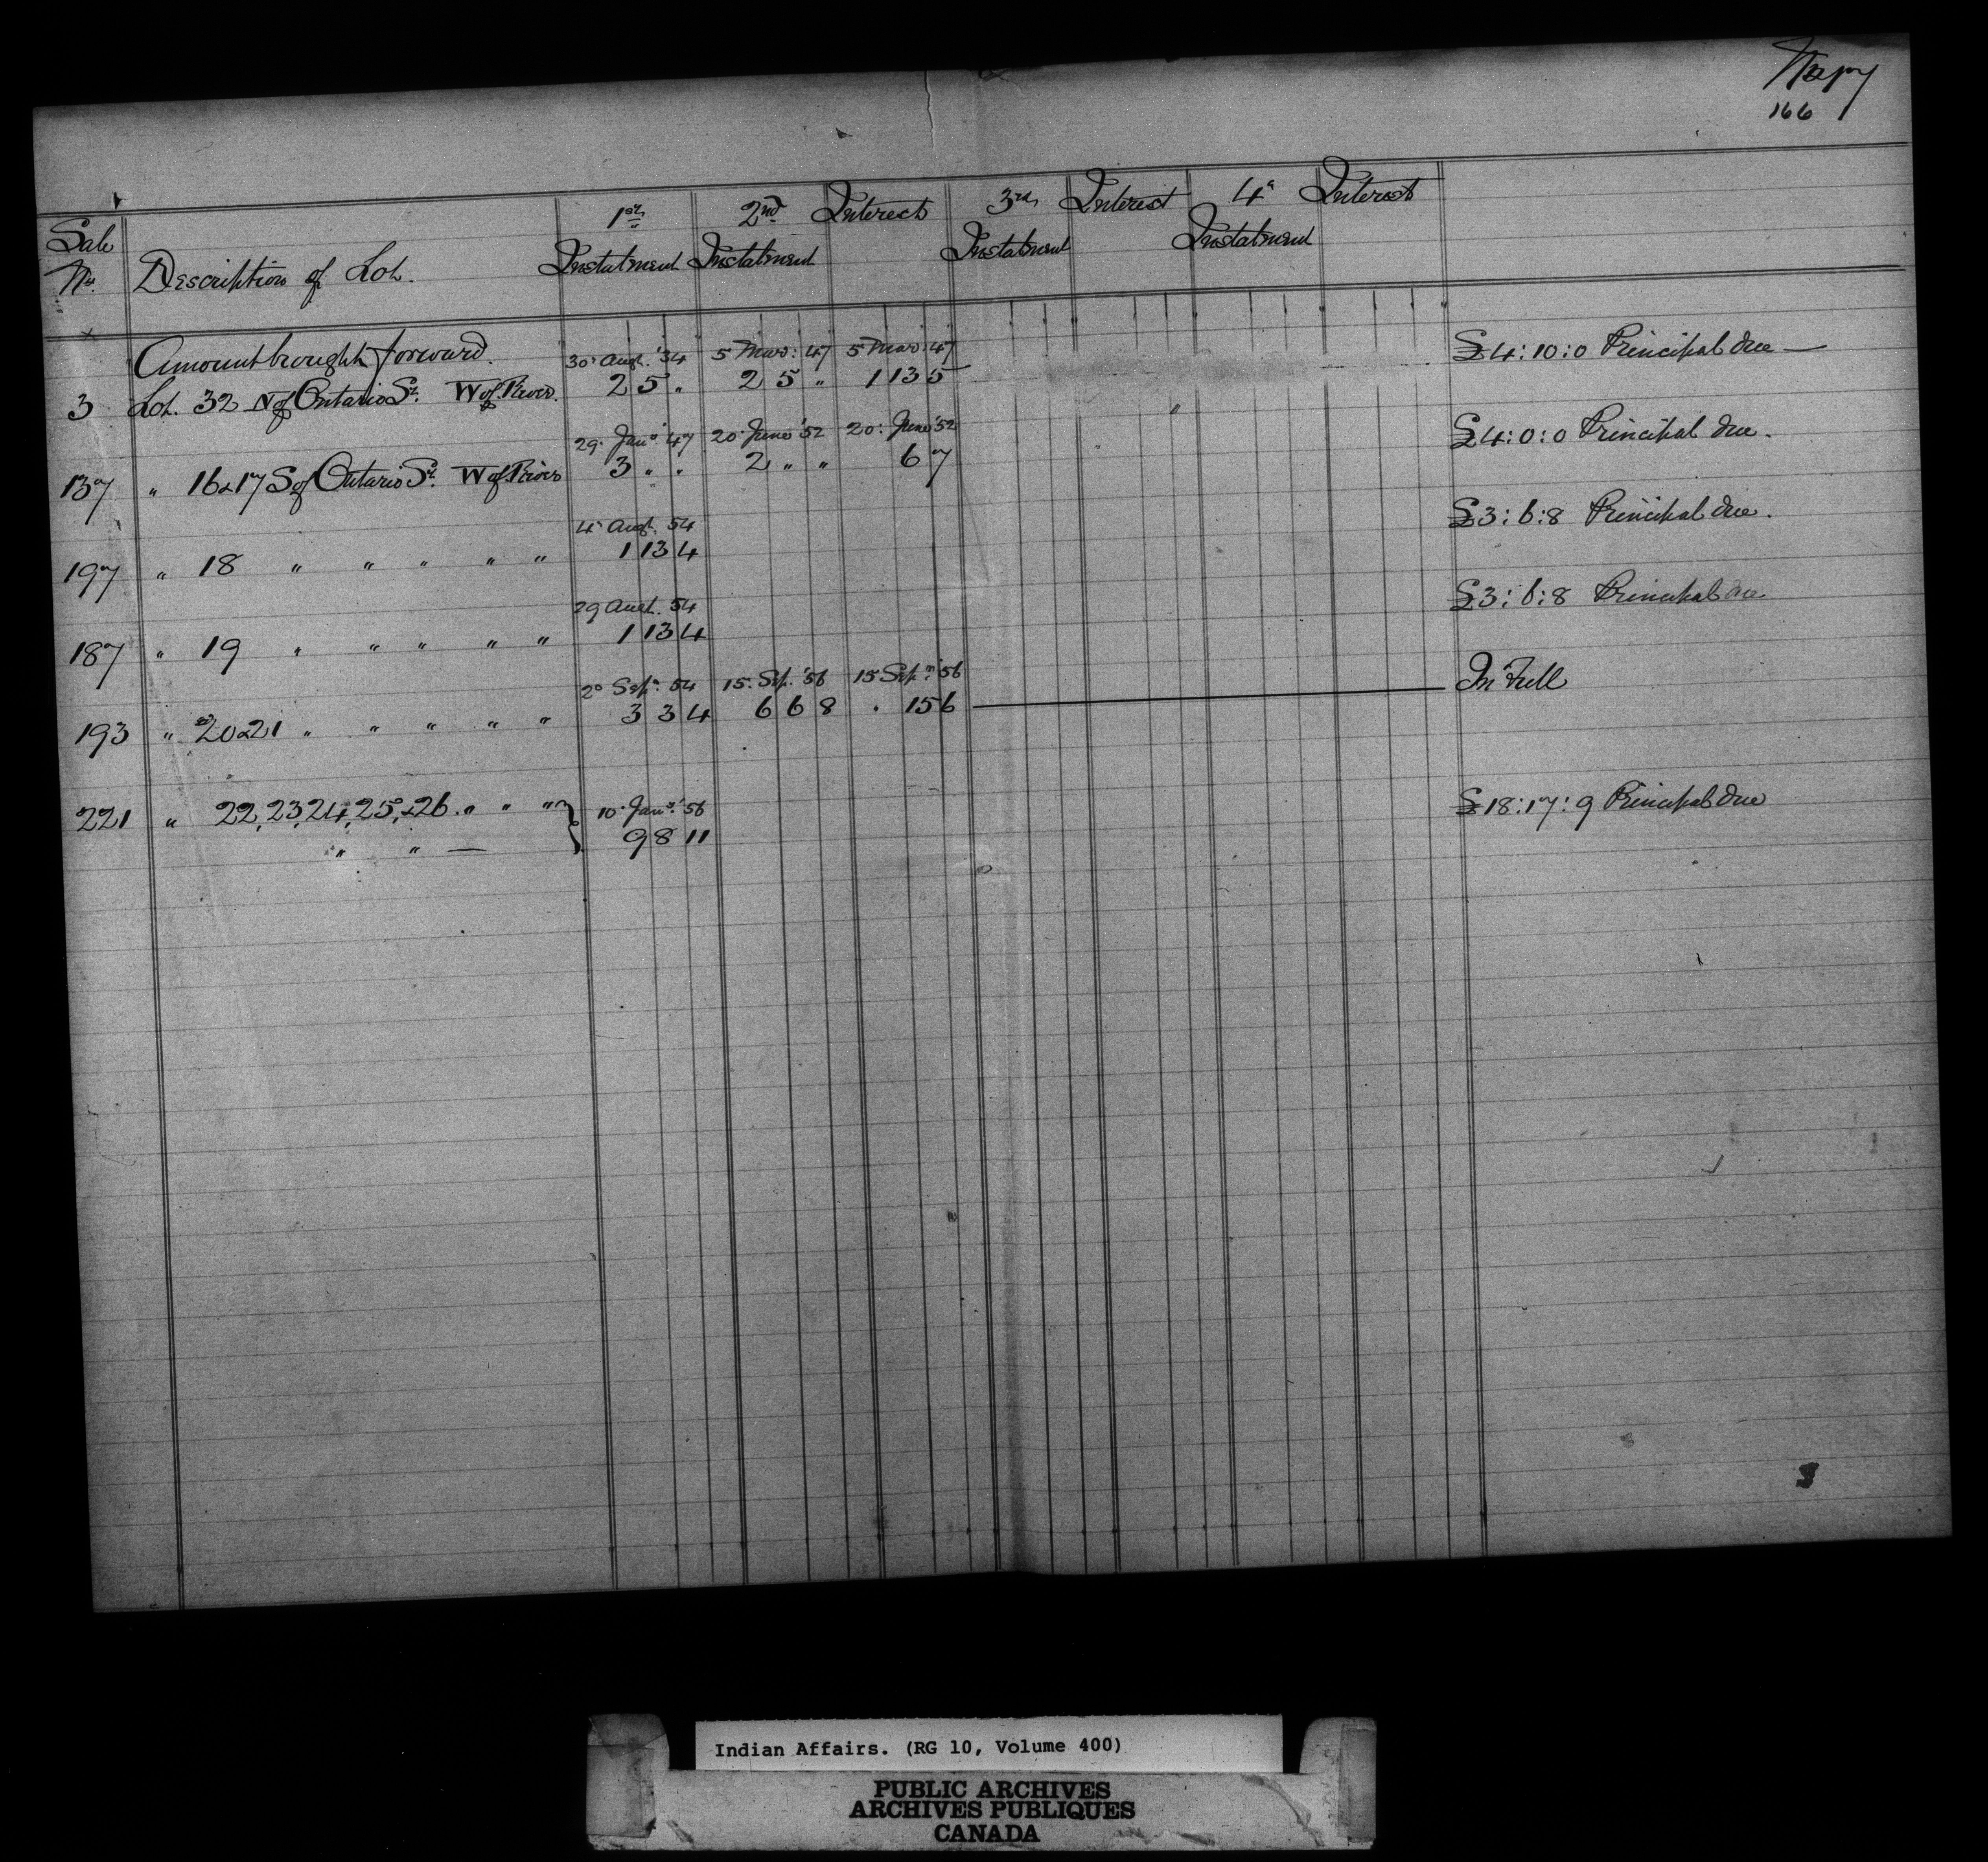 166
Sale 1st 2nd Interest 3rd Interest 4th Interest
No. Description of Lot. Instalment Instalment Instalment Instalment
Amount brought forward. 30 Augt. '34 5 Mar: 47 5 Mar: 47 £4:10:0 Principal due —
3 Lot. 32 N of Ontario St. W of River. 2 5 . 2 5 " 1 13 5
29 Jany. '47 20 June '52 20: June '52 £4:0:0 Principal due.
137 " 16 & 17 S of Ontario St. W of River 3 " . 2 " " 6 7
4 Augt. 54 £3:6:8 Principal due.
197 " 18 " " " " " 1 13 4
29 Augt. 54 £3:6:8 Principal due
187 " 19 " " " " " 1 13 4
2 Sepr. 54 15. Sep. '56 15 Sepr. '56 In Full
193 " 20 & 21 " " " " " 3 3 4 6 6 8 . 15 6
221 " 22, 23, 24, 25, & 26 . " " " } 10 Jany. '56 £18:17:9 Principal due
" " — 9 8 11
Indian Affairs. (RG 10, Volume 400)
PUBLIC ARCHIVES
ARCHIVES PUBLIQUES
CANADA